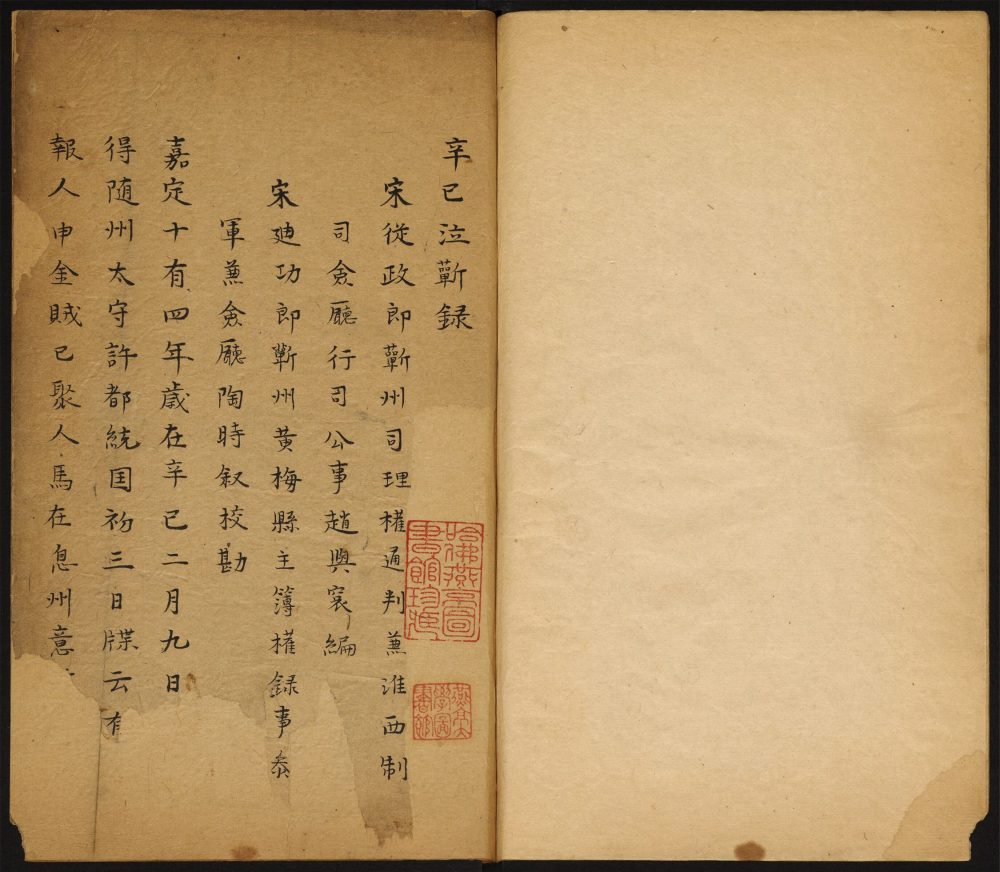 辛巳泣蘄録
宋從政郎蘄州司理權通判蒹淮西制
司僉廳行司公事趙與𥚃編
宋廸功郎蘄州黃梅縣主簿權録事叅
軍蒹僉廳陶時叙校勘
嘉定十有四年歲在辛巳二月九日
得随州太守許都統国初三日牒云有
報人申金賊已聚人馬在息州意
哈佛燕京圖書館珍藏
燕京大學圖書館